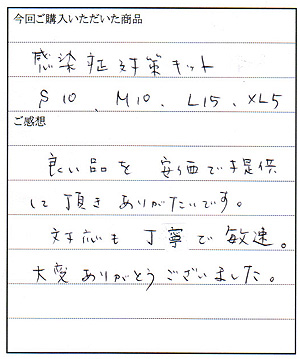 今回ご購入いただいた商品
感染症対策キット
S10、M10、L15、XL5
ご感想
良い品を 安価で提供
して頂き ありがたいです。
対応も 丁寧で敏速。
大変ありがとうございました。